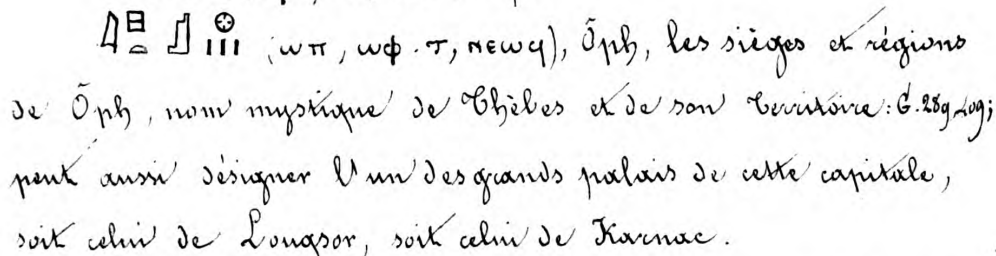 (ⲱⲡ, ⲱⲫ. ⲧ, ⲛⲉⲱϥ), Ōph, les sièges et régions
de Ōph, nom mystique de Thèbes et de son territoire: G. 289
peut aussi désigner l'un des grands palais de cette capitale,
soit celui de Louqsor, soit celui de Karnac.